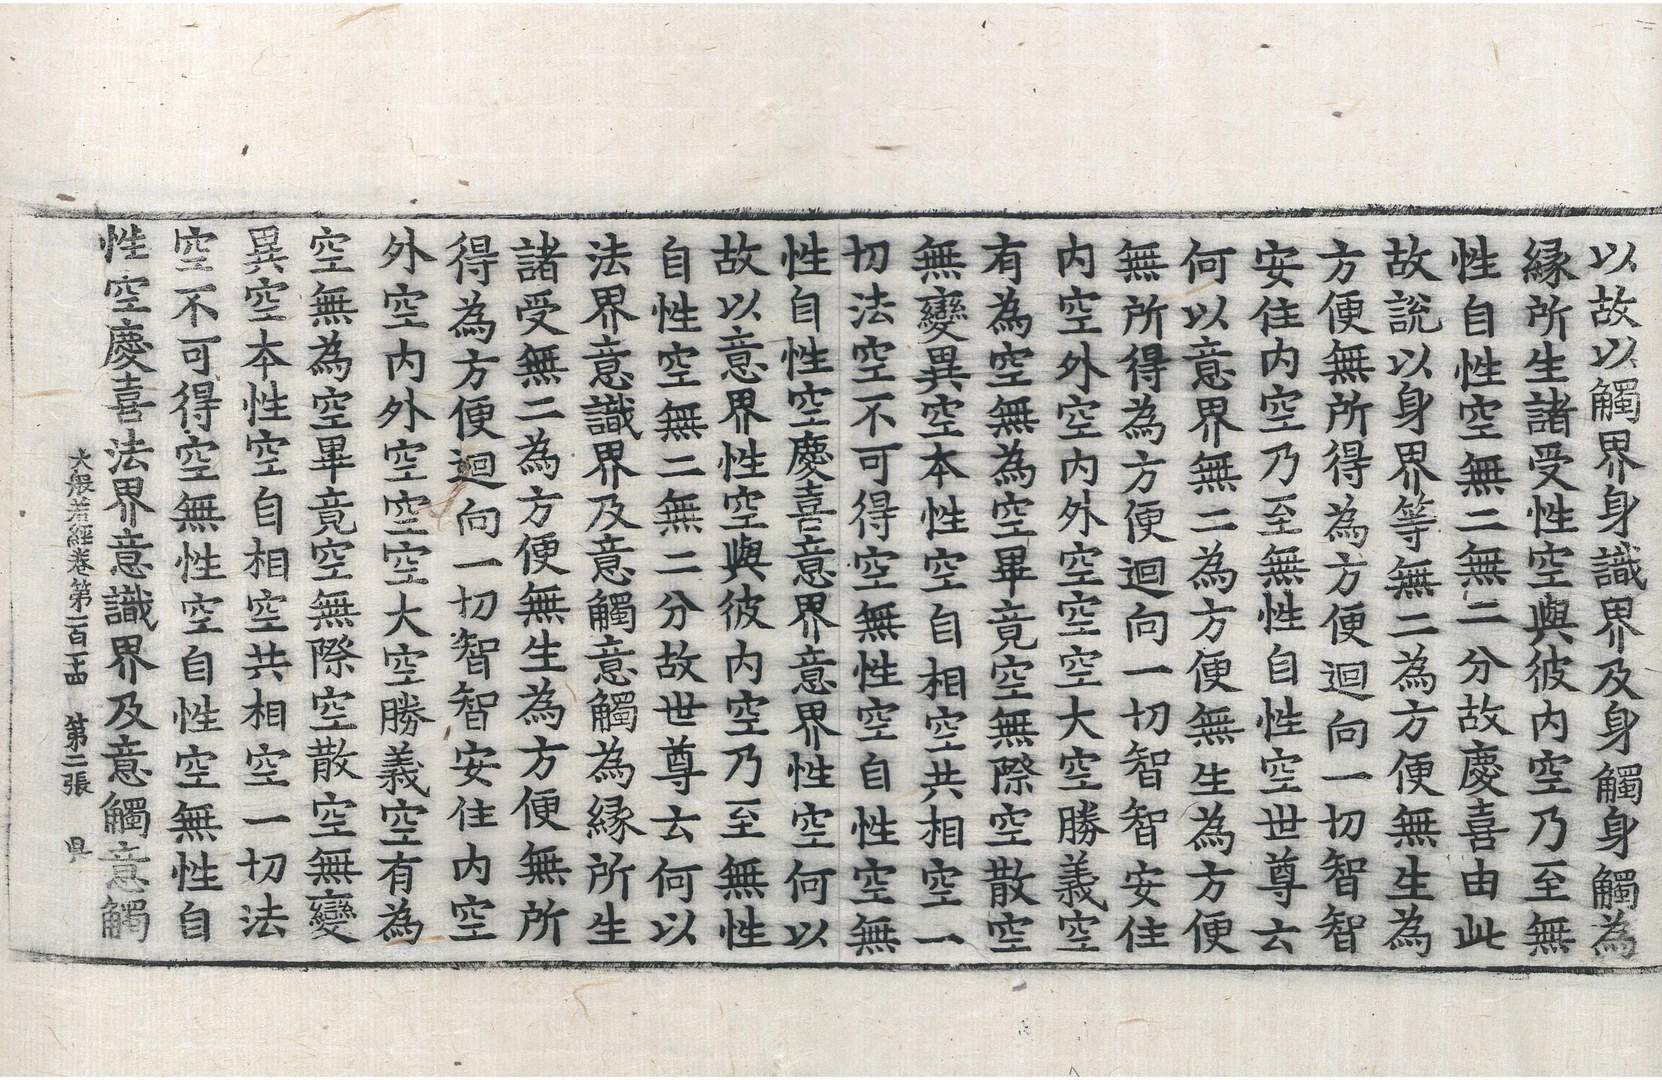 以故以觸界身識界及身觸身觸為
縁所生諸受性空與彼内空乃至無
性自性空無二無二分故慶喜由此
故說以身界等無二為方便無生為
方便無所得為方便迴向一切智智
安住内空乃至無性自性空世尊云
何以意界無二為方便無生為方便
無所得為方便迴向一切智智安住
内空外空内外空空空大空勝義空
有為空無為空畢竟空無際空散空
無變異空本性空自相空共相空一
切法空不可得空無性空自性空無
性自性空慶喜意界意界性空何以
故以意界性空與彼内空乃至無性
自性空無二無二分故世尊云何以
法界意識界及意觸意觸為縁所生
諸受無二為方便無生為方便無所
得為方便迴向一切智智安住内空
外空内外空空空大空勝義空有為
空無為空畢竟空無際空散空無變
異空本性空自相空共相空一切法
空不可得空無性空自性空無性自
性空慶喜法界意識界及意觸意觸
大般若經卷第一百十四 第二張 昃